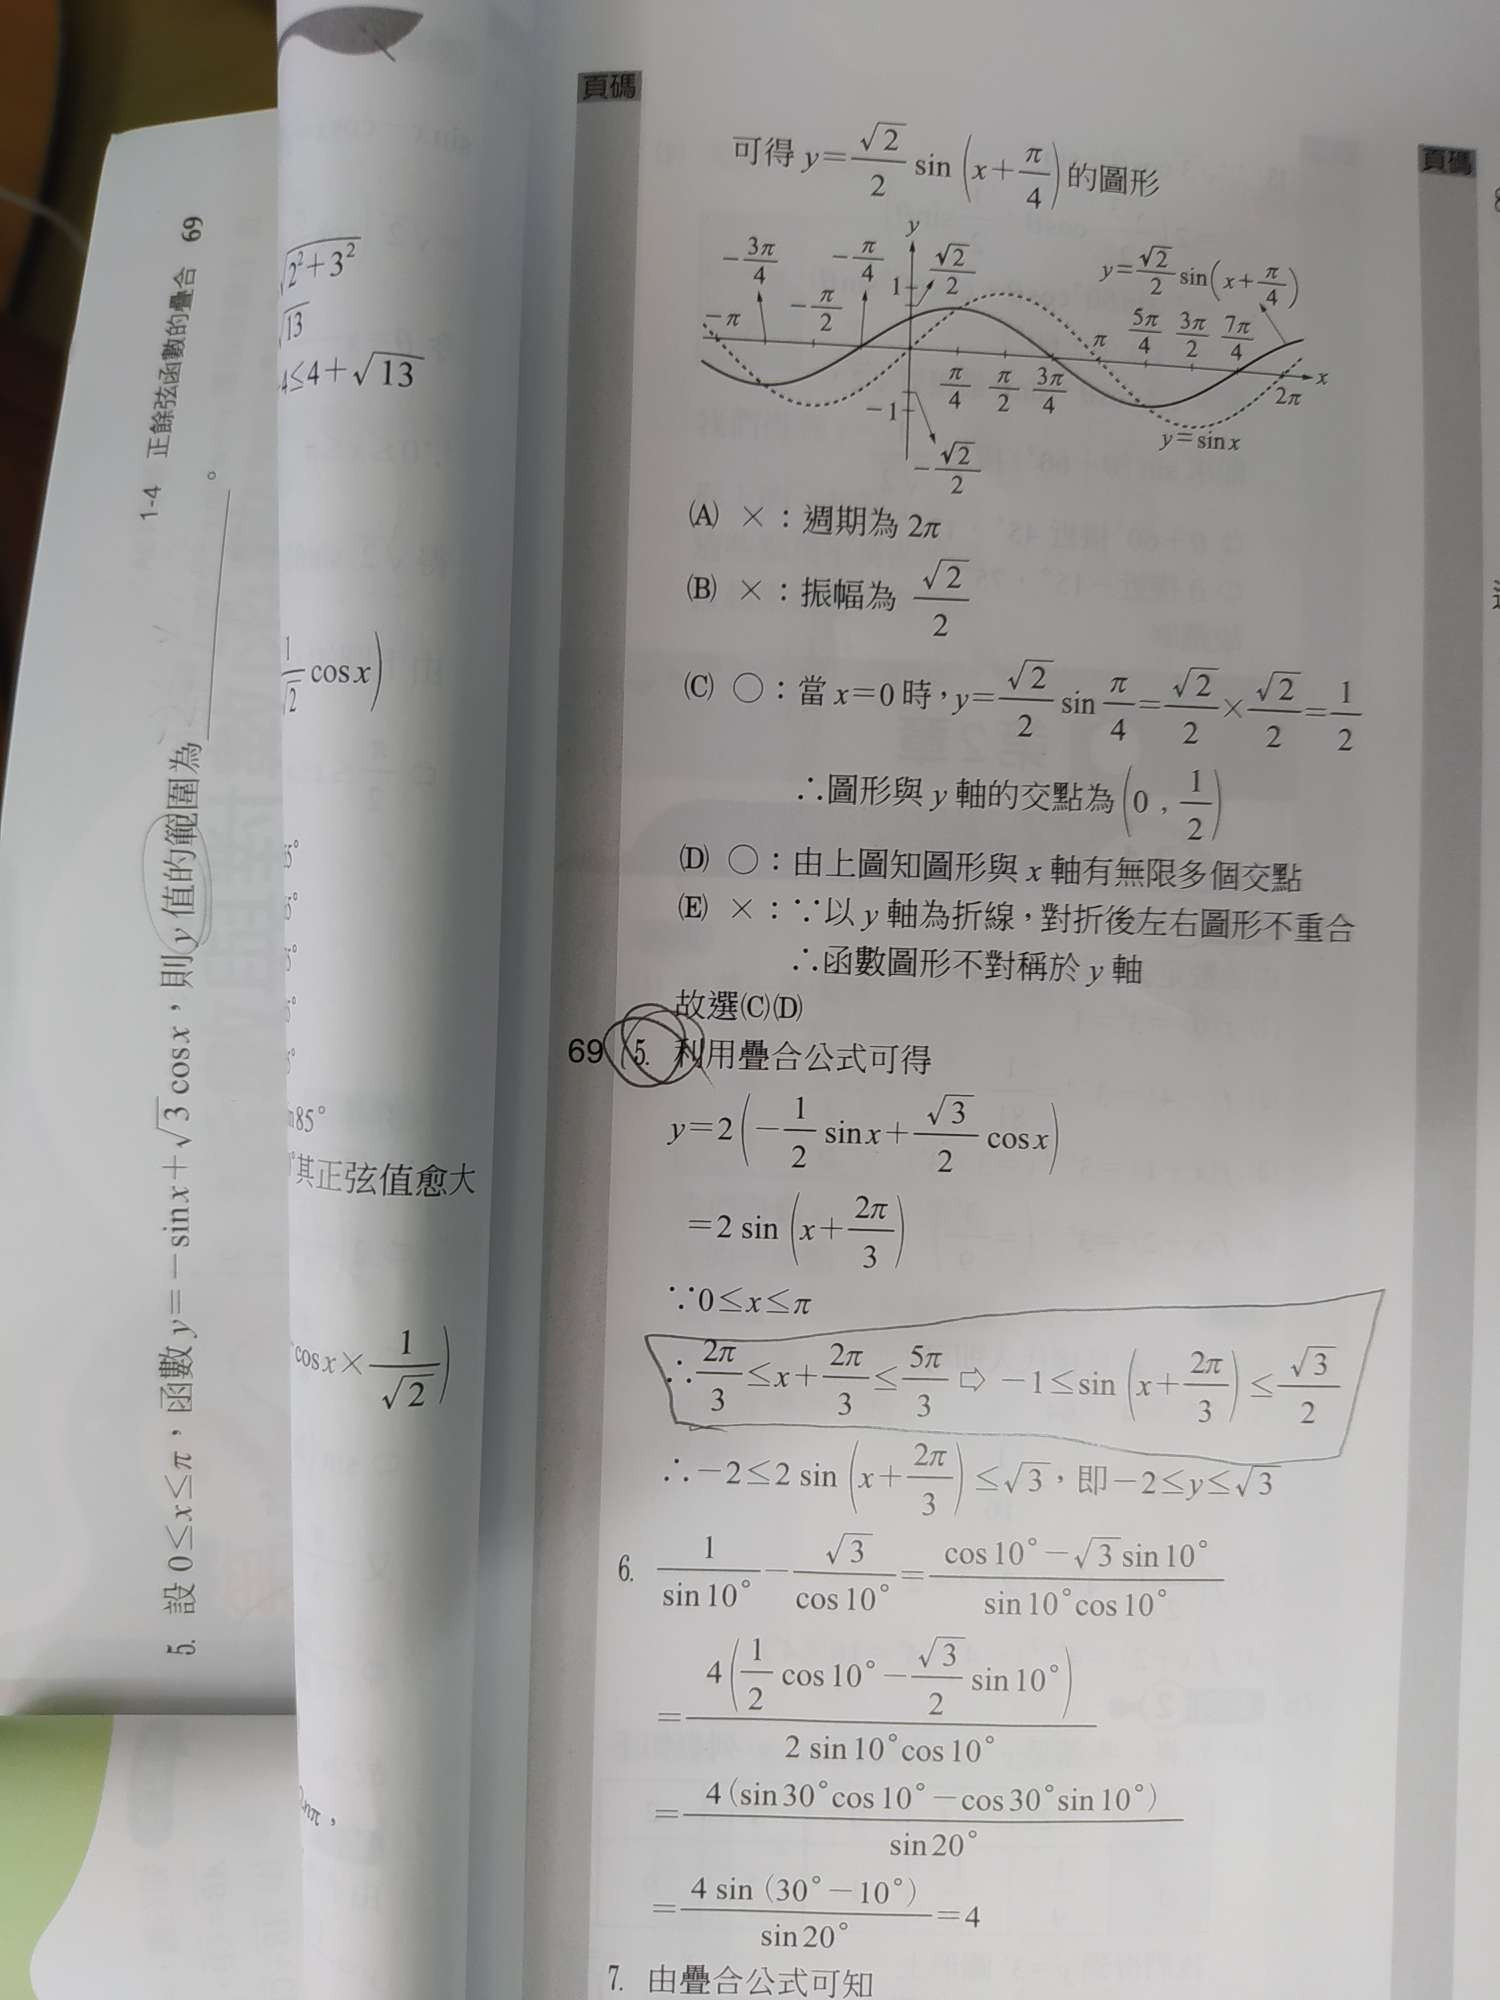 1-4 正餘弦函數的疊合 69
5. 設 0≤x≤π，函數 y=−sinx+√3 cosx，則 y 值的範圍為________。
√2²+3²
√13
4≤4+√13
1/√2 cosx)
85°
其正弦值愈大
cosx×1/√2)
頁碼
可得 y=√2/2 sin(x+π/4)的圖形
−3π/4 −π/4 y √2/2 y=√2/2 sin(x+π/4)
1
−π −π/2 π 5π/4 3π/2 7π/4
π/4 π/2 3π/4 2π x
−1
−√2/2 y=sinx
(A) ×：週期為 2π
(B) ×：振幅為 √2/2
(C) ○：當 x=0 時，y=√2/2 sin π/4=√2/2×√2/2=1/2
∴圖形與 y 軸的交點為(0，1/2)
(D) ○：由上圖知圖形與 x 軸有無限多個交點
(E) ×：∵以 y 軸為折線，對折後左右圖形不重合
∴函數圖形不對稱於 y 軸
故選(C)(D)
69 5. 利用疊合公式可得
y=2(−1/2 sinx+√3/2 cosx)
=2 sin(x+2π/3)
∵0≤x≤π
∴2π/3≤x+2π/3≤5π/3 ⇨ −1≤sin(x+2π/3)≤√3/2
∴−2≤2 sin(x+2π/3)≤√3，即−2≤y≤√3
6. 1/sin10°−√3/cos10°=cos10°−√3 sin10°/sin10°cos10°
=4(1/2 cos10°−√3/2 sin10°)/2 sin10°cos10°
=4(sin30°cos10°−cos30°sin10°)/sin20°
=4 sin(30°−10°)/sin20°=4
7. 由疊合公式可知
頁碼